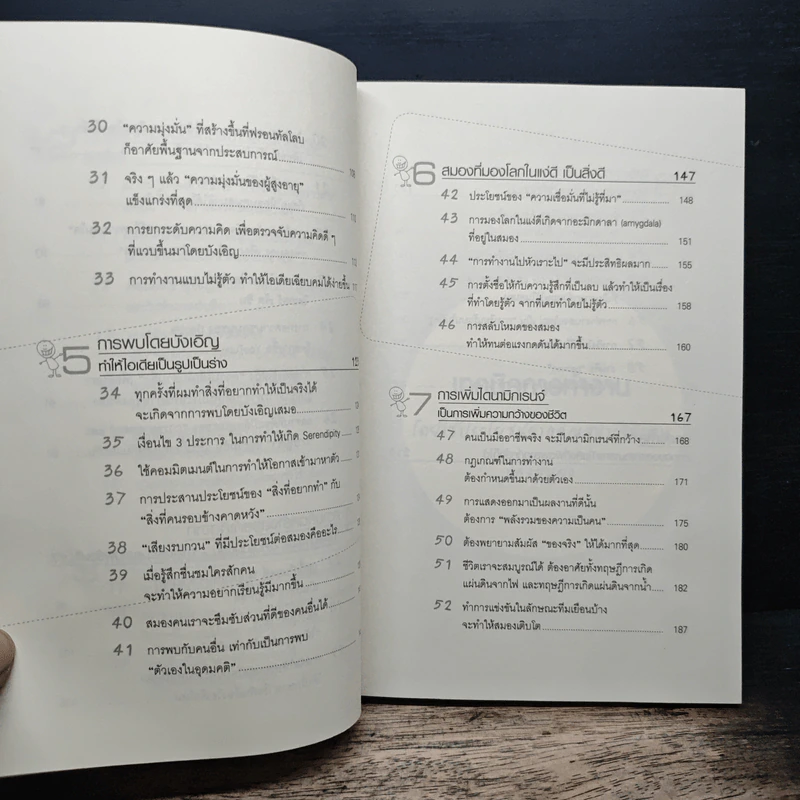 30 "ความมุ่งมั่น" ที่สร้างขึ้นที่ฟรอนทัลโลบ
ก็อาศัยพื้นฐานจากประสบการณ์
31 จริง ๆ แล้ว "ความมุ่งมั่นของผู้สูงอายุ"
แข็งแกร่งที่สุด
32 การยกระดับความคิด เพื่อตรวจจับความคิดดี ๆ
ที่แวบขึ้นมาโดยบังเอิญ
33 การทำงานแบบไม่รู้ตัว ทำให้ไอเดียเฉียบคมได้ง่ายขึ้น
5 การพบโดยบังเอิญ
ทำให้ไอเดียเป็นรูปเป็นร่าง
34 ทุกครั้งที่ผมทำสิ่งที่อยากทำให้เป็นจริงได้
จะเกิดจากการพบโดยบังเอิญเสมอ
35 เงื่อนไข 3 ประการ ในการทำให้เกิด Serendipity
36 ใช้คอมมิตเมนต์ในการทำให้โอกาสเข้ามาหาตัว
37 การประสานประโยชน์ของ "สิ่งที่อยากทำ" กับ
"สิ่งที่คนรอบข้างคาดหวัง"
38 "เสียงรบกวน" ที่มีประโยชน์ต่อสมองคืออะไร
39 เมื่อรู้สึกชื่นชมใครสักคน
จะทำให้ความอยากเรียนรู้มีมากขึ้น
40 สมองคนเราจะซึมซับส่วนที่ดีของคนอื่นได้
41 การพบกับคนอื่น เท่ากับเป็นการพบ
"ตัวเองในอุดมคติ"
6 สมองที่มองโลกในแง่ดี เป็นสิ่งดี 147
42 ประโยชน์ของ "ความเชื่อมั่นที่ไม่รู้ที่มา" 148
43 การมองโลกในแง่ดีเกิดจากอะมิกดาลา (amygdala)
ที่อยู่ในสมอง 151
44 "การทำงานไปหัวเราะไป" จะมีประสิทธิผลมาก 155
45 การตั้งชื่อให้กับความรู้สึกที่เป็นลบ แล้วทำให้เป็นเรื่อง
ที่ทำโดยรู้ตัว จากที่เคยทำโดยไม่รู้ตัว 158
46 การสลับโหมดของสมอง
ทำให้ทนต่อแรงกดดันได้มากขึ้น 160
7 การเพิ่มไดนามิกเรนจ์
เป็นการเพิ่มความกว้างของชีวิต 167
47 คนเป็นมืออาชีพจริง จะมีไดนามิกเรนจ์ที่กว้าง 168
48 กฎเกณฑ์ในการทำงาน
ต้องกำหนดขึ้นมาด้วยตัวเอง 171
49 การแสดงออกมาเป็นผลงานที่ดีนั้น
ต้องการ "พลังรวมของความเป็นคน" 175
50 ต้องพยายามสัมผัส "ของจริง" ให้ได้มากที่สุด 180
51 ชีวิตเราจะสมบูรณ์ได้ ต้องอาศัยทั้งทฤษฎีการเกิด
แผ่นดินจากไฟ และทฤษฎีการเกิดแผ่นดินจากน้ำ 182
52 ทำการแข่งขันในลักษณะทีมเยือนบ้าง
จะทำให้สมองเติบโต 187